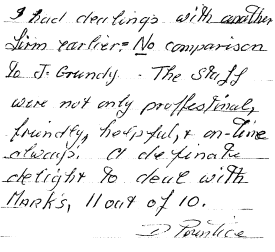 I had dealings with another
firm earlier = No comparison
to J. Grundy. The Staff
were not only proffestional,
friendly, helpful, & on-time
always. A definate
delight to deal with
Mark's, 11 out of 10.